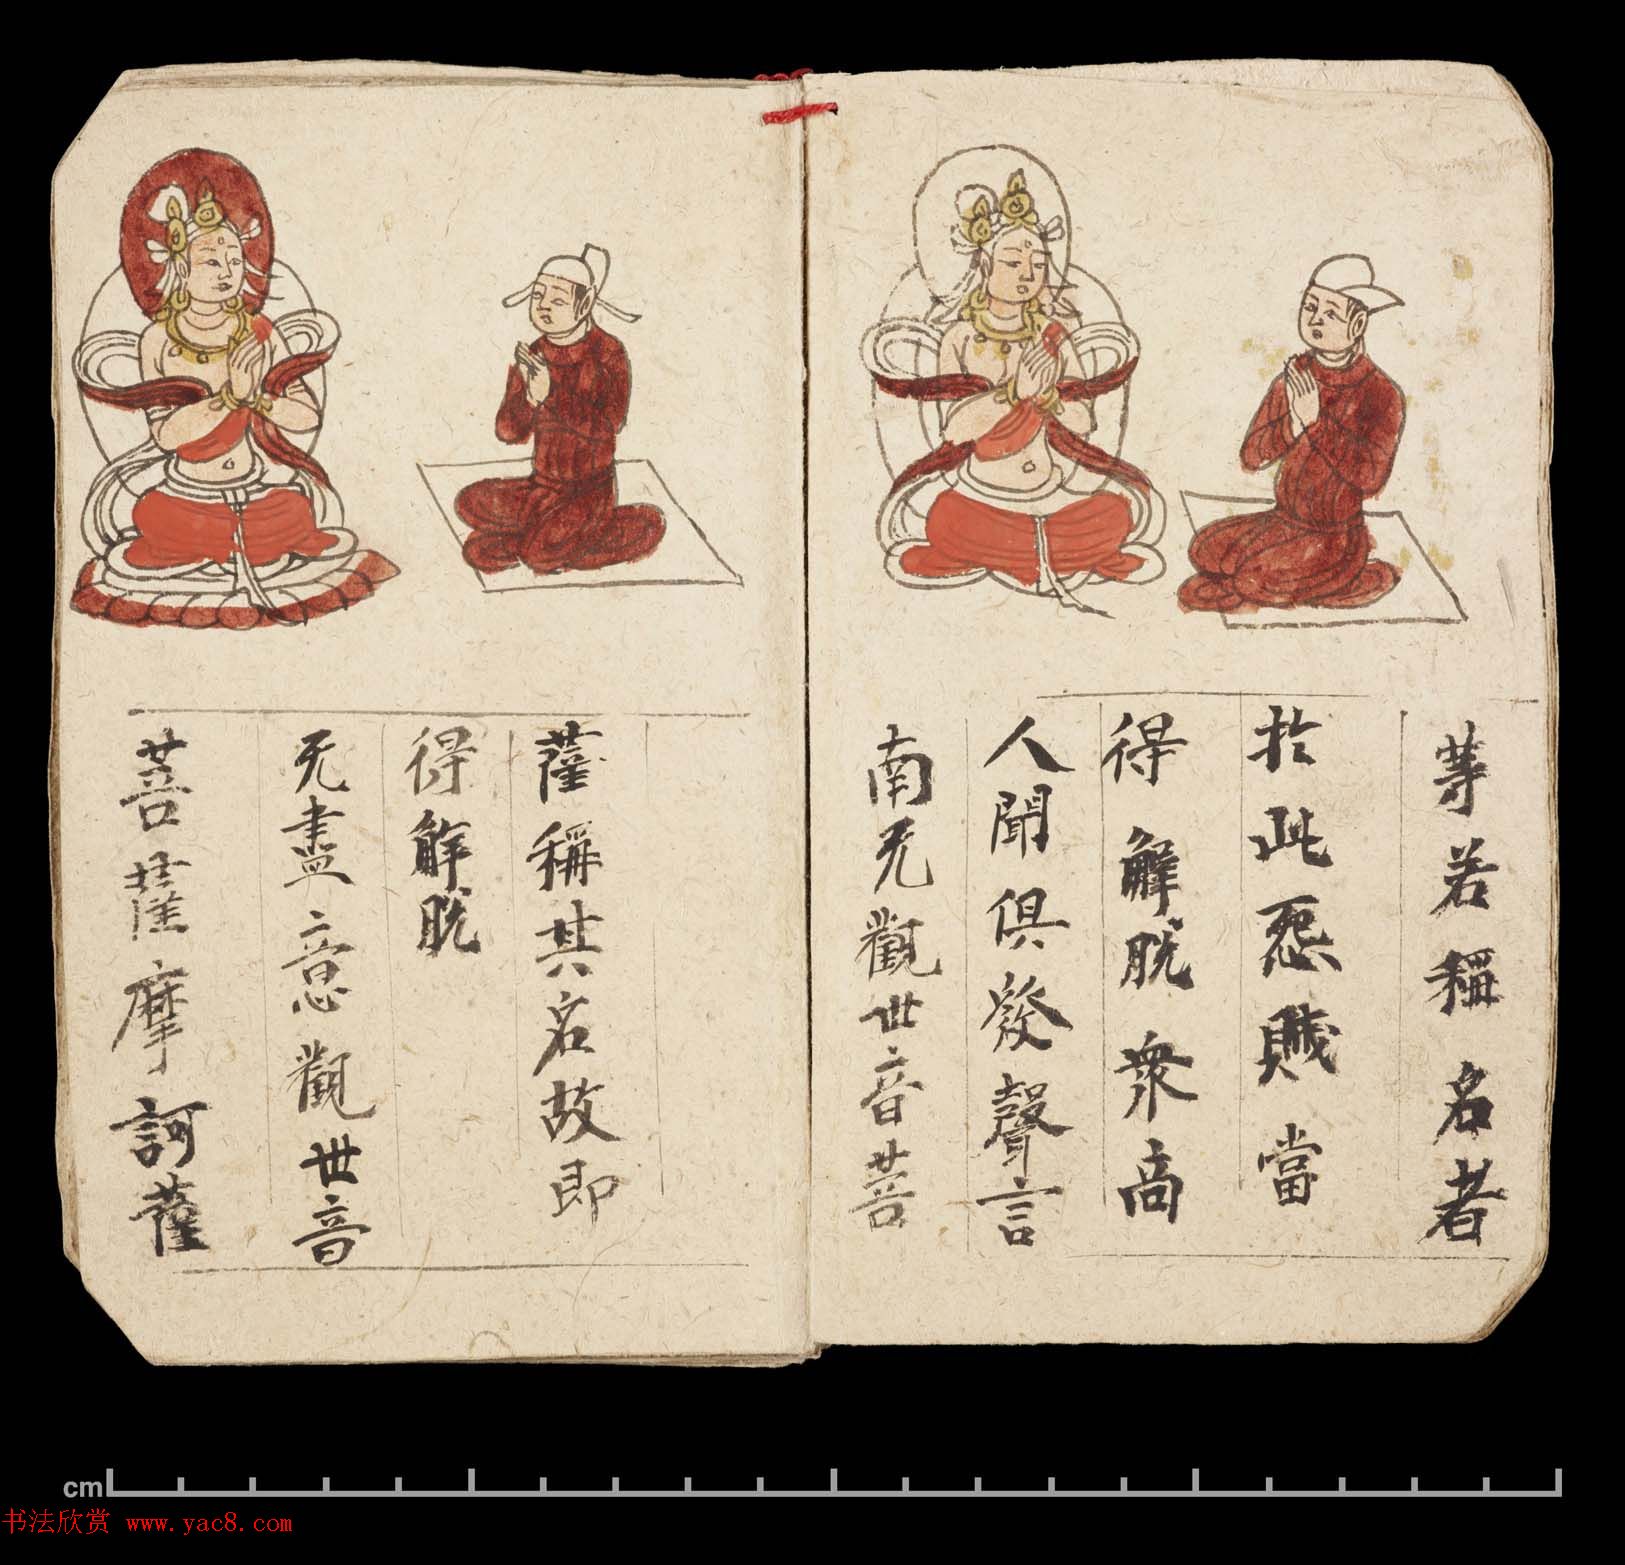 等若稱名者
於此怨賊當
得解脫衆商
人聞俱發聲言
南无觀世音菩
薩稱其名故即
得解脫
无盡意觀世音
菩薩摩訶薩
cm
书法欣赏 www.yac8.com